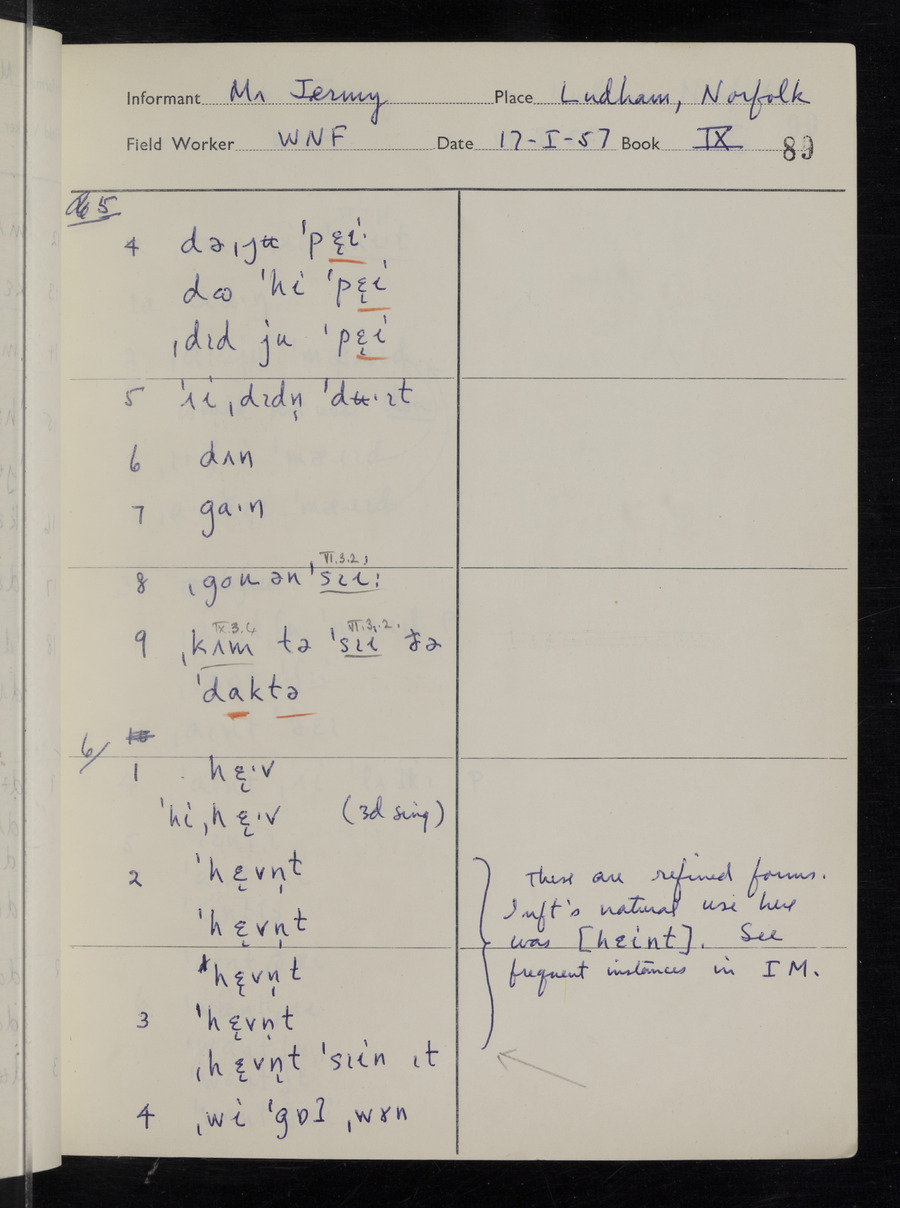 Informant Mr Jermy Place Ludham, Norfolk
Field Worker WNF Date 17-I-57 Book IX 89
5
4 də ˌjʉ ˈpɛ̨i·
dɷ ˈhi ˈpɛ̨i
ˌdɪd ju ˈpɛ̨i
5 ˈɪi ˌdɪdn̩ ˈdʉ·ɪt
6 dʌn
7 ga·ɪn
VI.3.2;
8 ˌgoʊ ən ˈsɪi:
IX.3.4 VI.3.2.
9 ˌkʌm tə ˈsɪi ðə
ˈdaktə
6/
1 hɛ̨·v
ˈhi ˌhɛ̨·v (3d sing)
2 ˈhɛ̨vn̩t
ˈhɛ̨vn̩t
ˈhɛ̨vn̩t
3 ˈhɛ̨vn̩t
ˌhɛ̨vn̩t ˈsɪin ɪt
4 ˌwi ˈgɒʔ ˌwɤn
These are refined forms.
Inft's natural use here
was [hɛint]. See
frequent instances in I M.